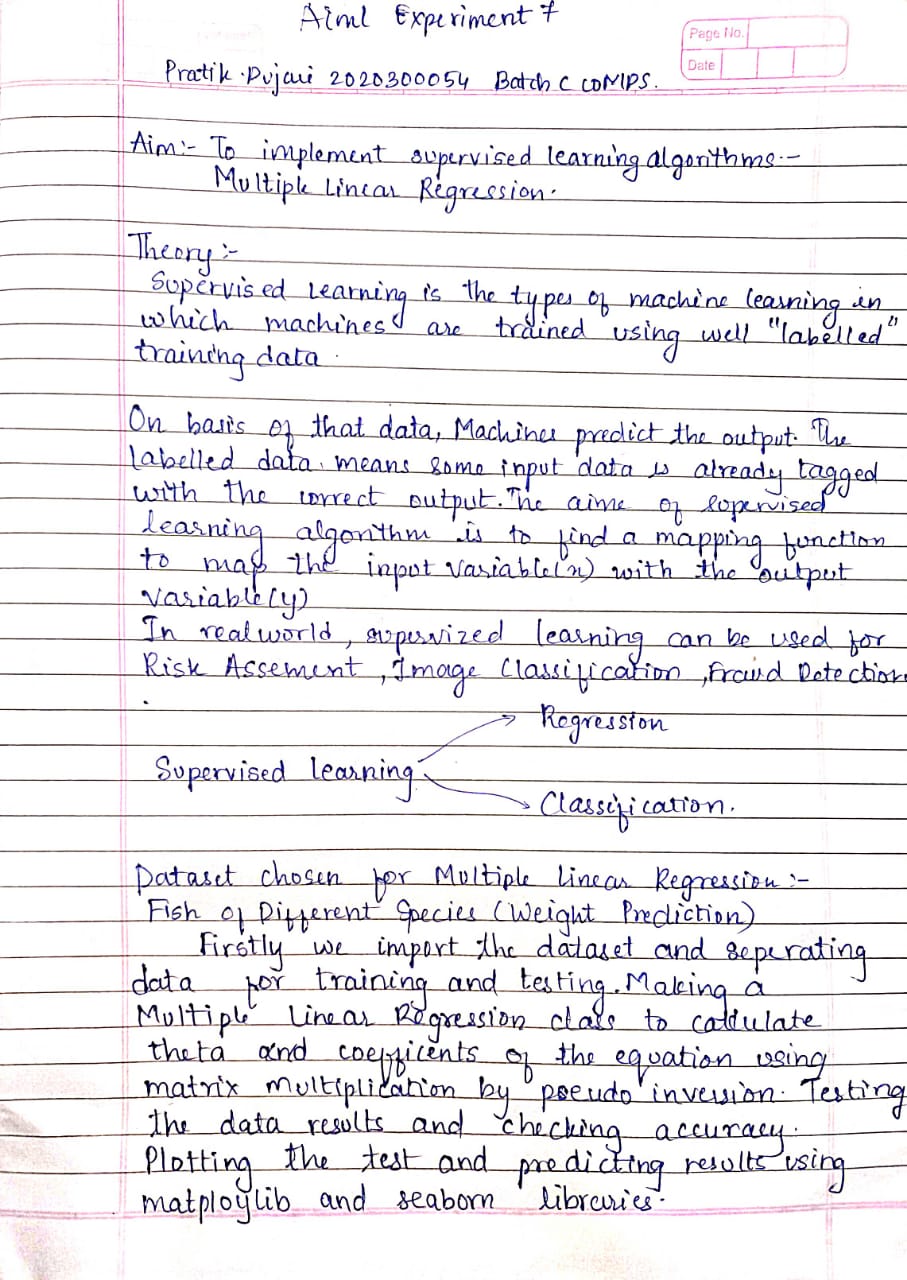 Aiml Experiment 7
Page No.
Date
Pratik Pujari 2020300054 Batch C COMPS.
Aim:- To implement supervised learning algorithms:-
Multiple Linear Regression.
Theory :-
Supervised Learning is the types of machine learning in
which machines are trained using well "labelled"
training data.
On basis of that data, Machines predict the output. The
labelled data. means some input data is already tagged
with the correct output. The aime of supervised
learning algorithm is to find a mapping function
to map the input variable(x) with the output
variable(y)
In realworld, supervized learning can be used for
Risk Assement, Image Classification, Fraud Detection
.
Regression
Supervised learning
Classification.
Dataset chosen for Multiple Linear Regression :-
Fish of Different Species (Weight Prediction)
Firstly we import the dataset and seperating
data for training and testing. Making a
Multiple Linear Regression class to calculate
theta and coefficents of the equation using
matrix multiplication by pseudo inversion. Testing
the data results and checking accuracy.
Plotting the test and predicting results using
matploylib and seaborn libraries.